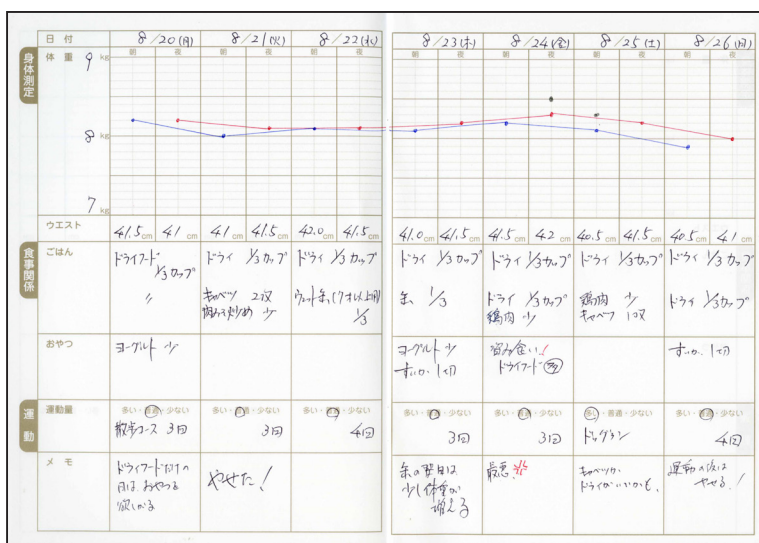 日付 8/20(月) 8/21(火) 8/22(水) 8/23(木) 8/24(金) 8/25(土) 8/26(日)
朝 夜 朝 夜 朝 夜 朝 夜 朝 夜 朝 夜 朝 夜
身体測定
体重
9 kg
8 kg
7 kg
ウエスト 41.5cm 41cm 41cm 41.5cm 42.0cm 41.5cm 41.0cm 41.5cm 41.5cm 42cm 40.5cm 41.5cm 40.5cm 41cm
食事関係
ごはん
ドライフード 1/3カップ
〃
ドライ 1/3カップ
キャベツ 2枚
肉みそ炒め 少
ドライ 1/3カップ
ウェット缶
1/3
ドライ 1/3カップ
缶 1/3
ドライ 1/3カップ
ドライ 1/3カップ
鶏肉 少
ドライ 1/3カップ
鶏肉 少
キャベツ 1枚
ドライ 1/3カップ
ドライ 1/3カップ
おやつ
ヨーグルト 少
ヨーグルト 少
すいか 1切
盗み食い!
ドライフード
すいか 1切
運動
運動量
多い・普通・少ない 多い・普通・少ない 多い・普通・少ない 多い・普通・少ない 多い・普通・少ない 多い・普通・少ない 多い・普通・少ない
散歩コース 3回 3回 4回 3回 3回 ドッグラン 4回
メモ
ドライフードだけの
日は、おやつを
欲しがる
やせた!
缶の翌日は
少し体重が
増える
最悪
キャベツか
ドライがいいかも。
運動の後は
やせる!